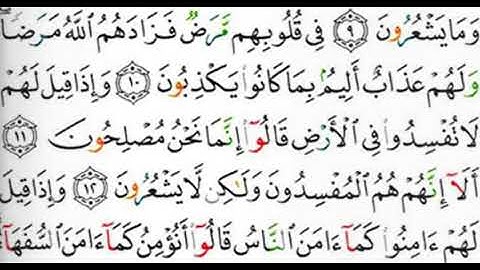 وَمَا يَشْعُرُونَ ٩ فِى قُلُوبِهِم مَّرَضٌ فَزَادَهُمُ ٱللَّهُ مَرَضًا
وَلَهُمْ عَذَابٌ أَلِيمٌۢ بِمَا كَانُوا۟ يَكْذِبُونَ ١٠ وَإِذَا قِيلَ لَهُمْ
لَا تُفْسِدُوا۟ فِى ٱلْأَرْضِ قَالُوٓا۟ إِنَّمَا نَحْنُ مُصْلِحُونَ ١١
أَلَآ إِنَّهُمْ هُمُ ٱلْمُفْسِدُونَ وَلَٰكِن لَّا يَشْعُرُونَ ١٢ وَإِذَا قِيلَ
لَهُمْ ءَامِنُوا۟ كَمَآ ءَامَنَ ٱلنَّاسُ قَالُوٓا۟ أَنُؤْمِنُ كَمَآ ءَامَنَ ٱلسُّفَهَآءُ